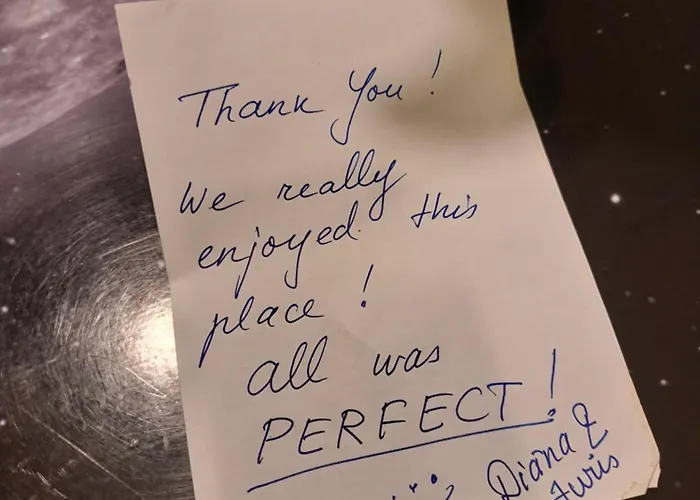 Thank You!
We really
enjoyed this
place!
all was
PERFECT!
Diana &
Juris